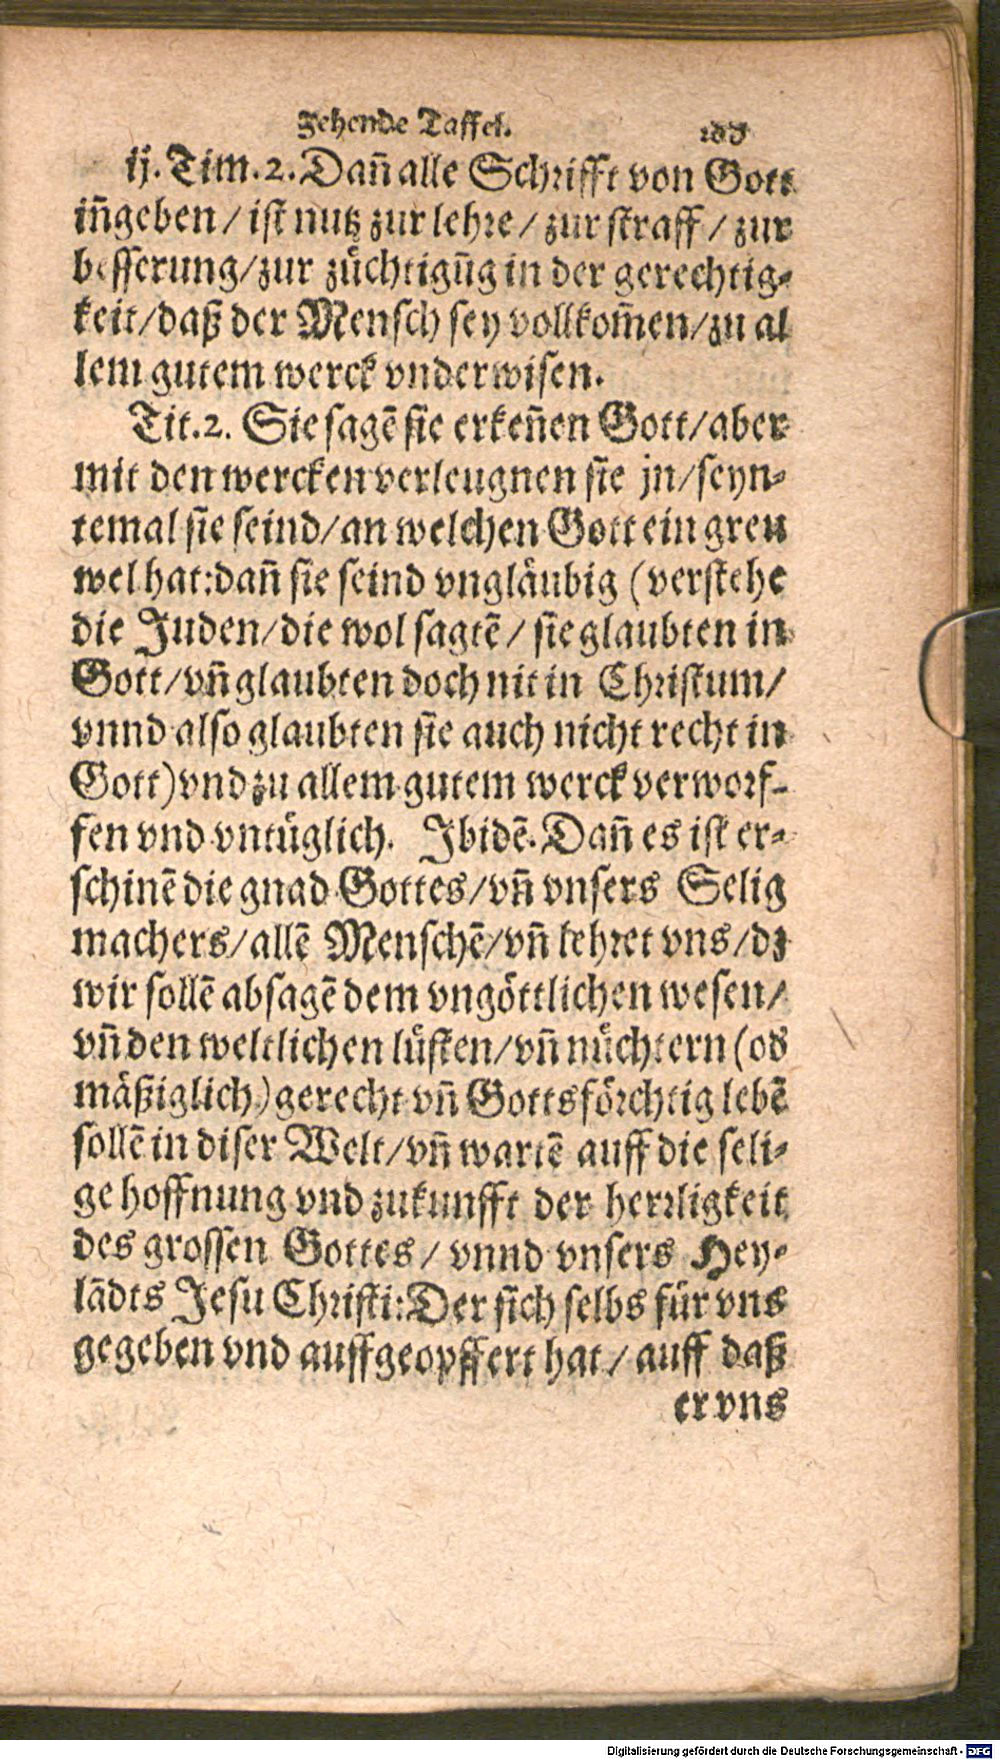 Zehende Taffel.
ij. Tim. 2. Dañ alle Schrifft von Gott
iñgeben / ist nutz zur lehre / zur straff / zur
besserung/zur züchtigũg in der gerechtig-
keit/daß der Mensch sey vollkom̃en/zu al
lem gutem werck vnderwisen.
Tit. 2. Sie sagẽ sie erkeñen Gott/aber
mit den wercken verleugnen sie jn/seyn-
temal sie seind/an welchen Gott ein greu
wel hat: dañ sie seind vngläubig (verstehe
die Juden/die wol sagtẽ / sie glaubten in
Gott/vñ glaubten doch nit in Christum/
vnnd also glaubten sie auch nicht recht in
Gott) vnd zu allem gutem werck verworf-
fen vnd vntüglich. Ibidẽ. Dañ es ist er-
schinẽ die gnad Gottes/vñ vnsers Selig
machers/allẽ Menschẽ/vñ lehret vns/dz
wir sollẽ absagẽ dem vngöttlichen wesen/
vñ den weltlichen lüsten/vñ nüchtern (od
mäßiglich) gerecht vñ Gottsförchtig lebẽ
sollẽ in diser Welt/vñ wartẽ auff die seli-
ge hoffnung vnd zukunfft der herrligkeit
des grossen Gottes / vnnd vnsers Hey-
lãdts Jesu Christi: Der sich selbs für vns
gegeben vnd auffgeopffert hat / auff daß
er vns
Digitalisierung gefördert durch die Deutsche Forschungsgemeinschaft - DFG